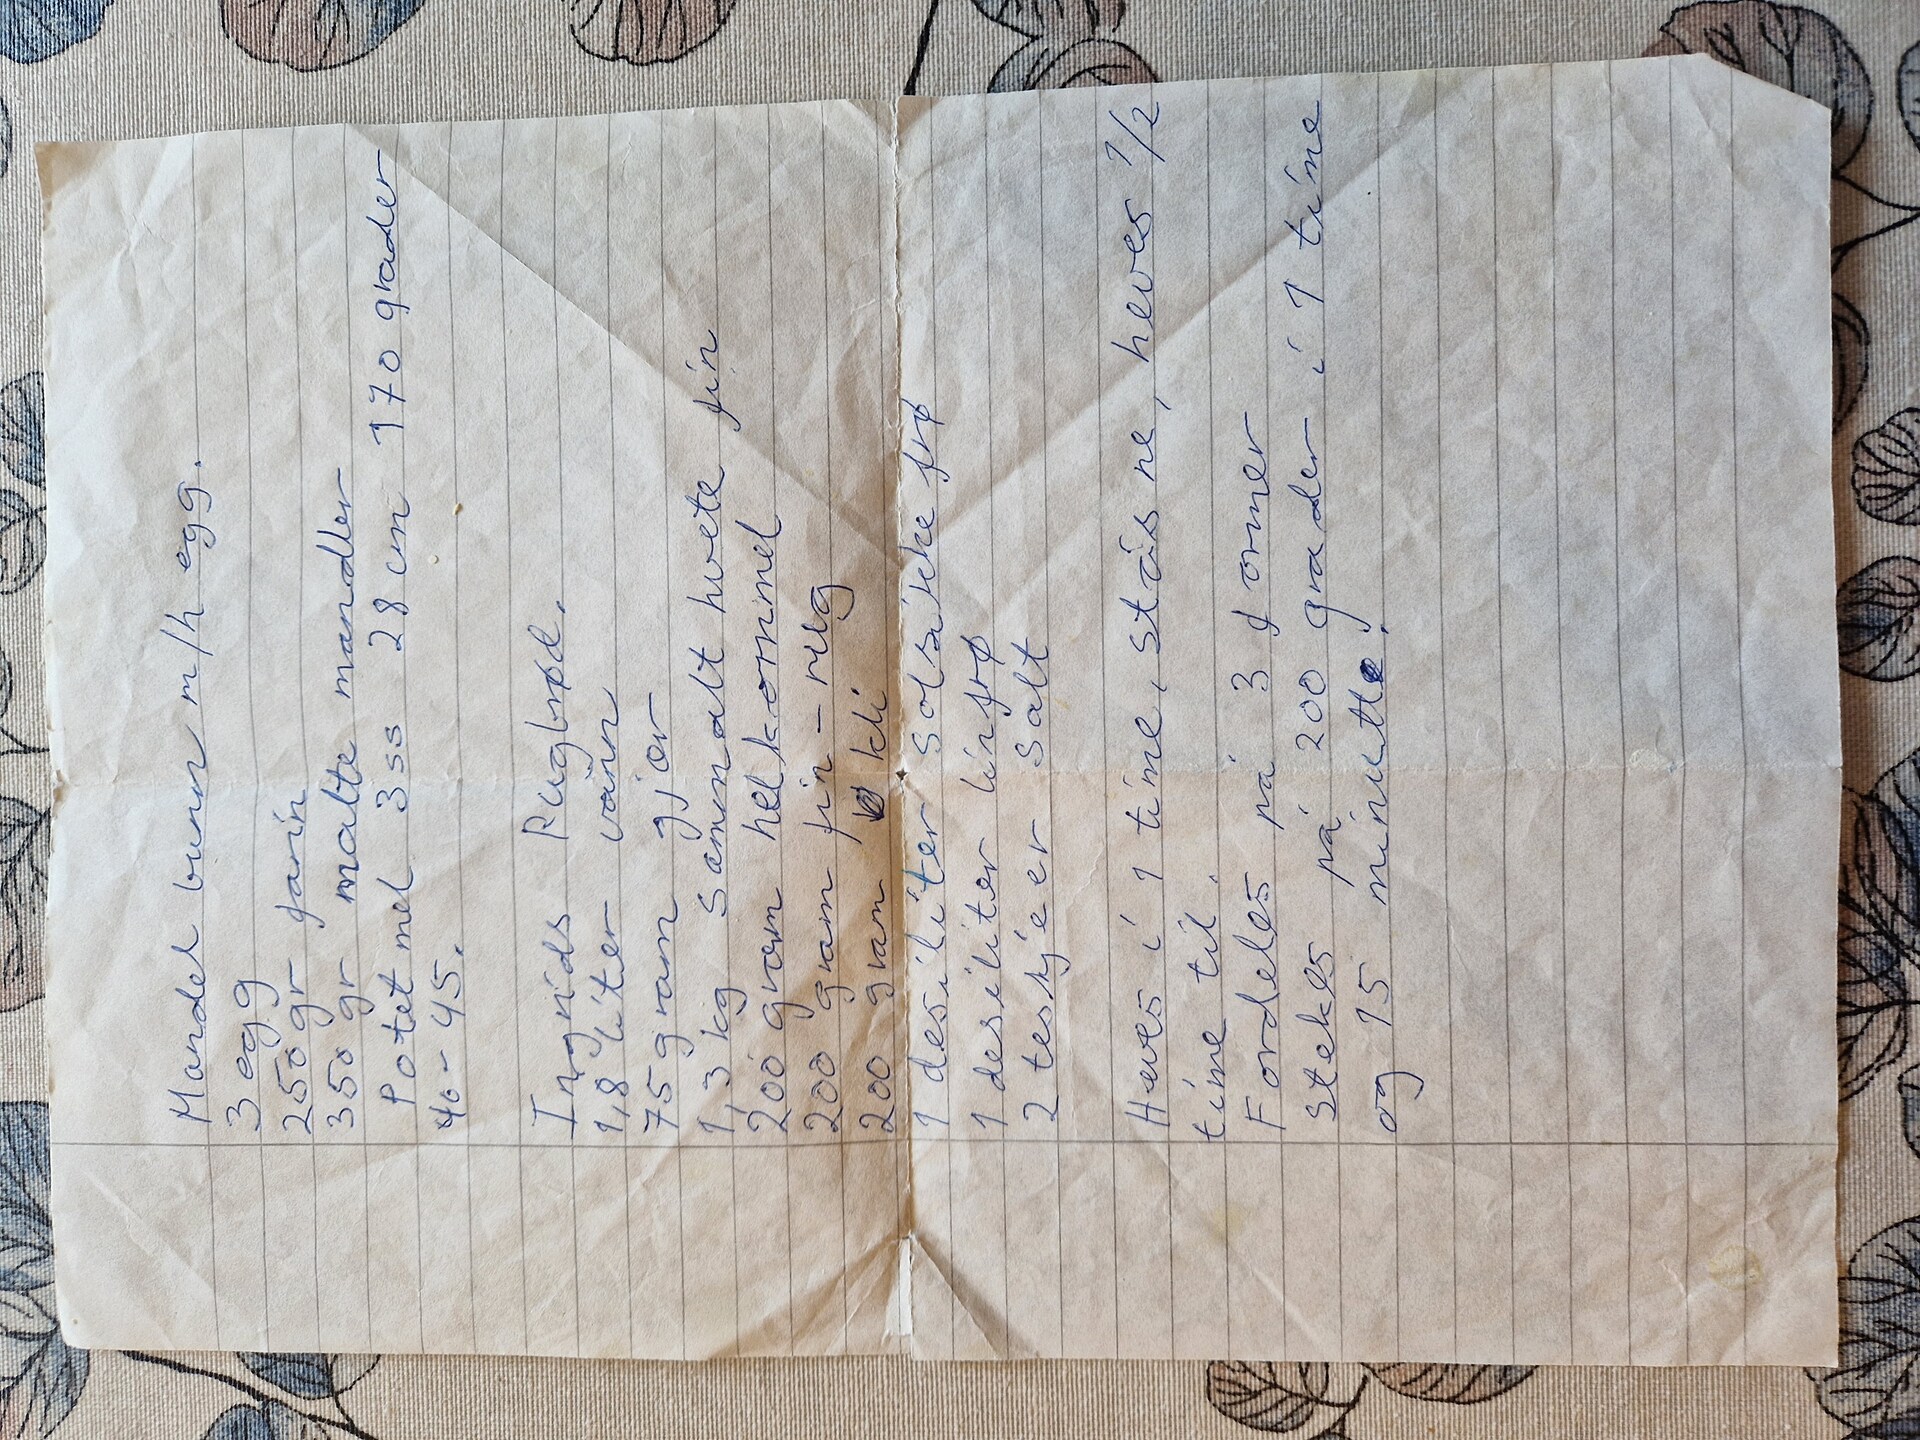 Mandel bunn m/h egg.
3 egg
250 gr farin
350 gr malte mandler
Potet mel 3 ss 28 cm 170 grader
40-45.
Ingrids Rugbrød.
1,8 liter vann
75 gram gjær
1,3 kg Sammalt hvete fin
200 gram helkornmel
200 gram fin-rug
200 gram kli
1 desiliter solsikke frø
1 desiliter linfrø
2 teskjeer salt
Heves i 1 time, stås ne, heves 1/2
time til.
Fordeles på 3 former
stekes på 200 grader i 1 time
og 15 minutte.